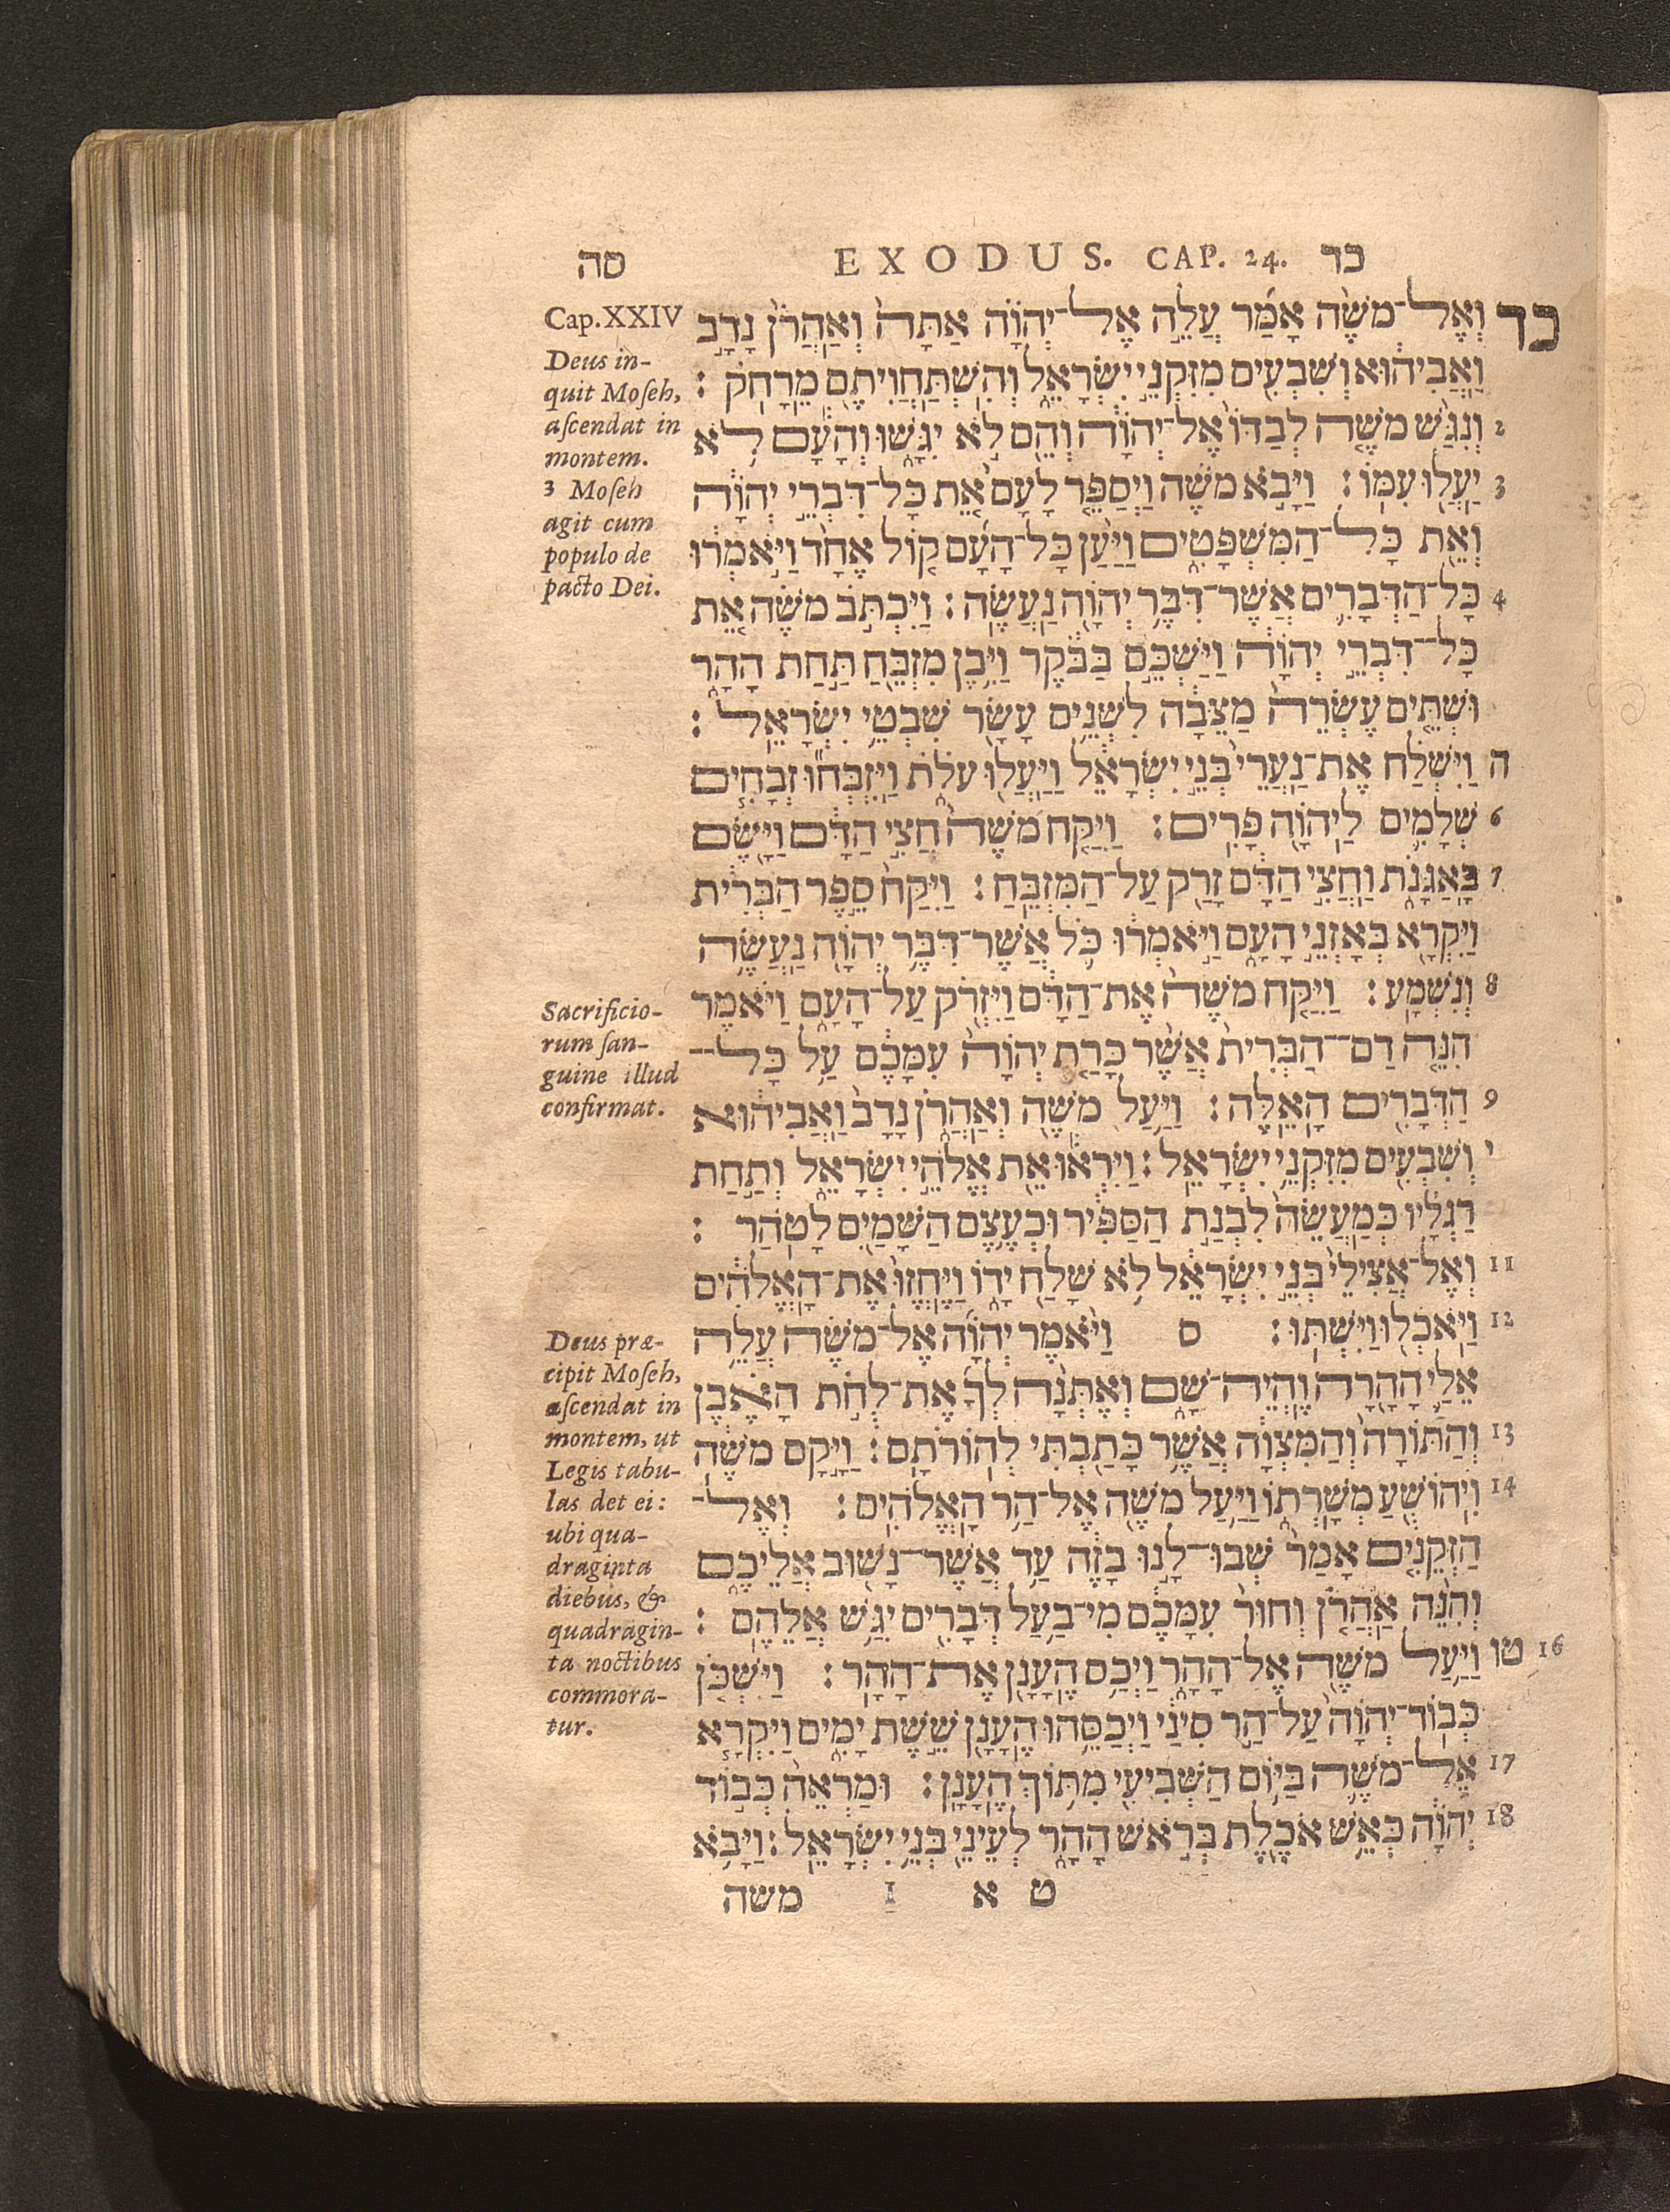 סה EXODUS. CAP. 24. כד
Cap. XXIV
Deus in-
quit Moſeh,
aſcendat in
montem.
3 Moſeh
agit cum
populo de
pacto Dei.
Sacrificio-
rum ſan-
guine illud
confirmat.
Deus præ-
cipit Moſeh,
aſcendat in
montem, ut
Legis tabu-
las det ei:
ubi qua-
draginta
diebus, &
quadragin-
ta noctibus
commora-
tur.
כד וְאֶל־מֹשֶׁ֨ה אָמַ֜ר עֲלֵ֣ה אֶל־יְהוָֹ֗ה אַתָּה֙ וְאַהֲרֹן֙ נָדָ֣ב
וַאֲבִיה֔וּא וְשִׁבְעִ֖ים מִזִּקְנֵ֣י יִשְׂרָאֵ֑ל וְהִשְׁתַּחֲוִיתֶ֖ם מֵרָחֹֽק׃
2 וְנִגַּ֨שׁ מֹשֶׁ֤ה לְבַדּוֹ֙ אֶל־יְהוָֹ֔ה וְהֵ֖ם לֹ֣א יִגָּ֑שׁוּ וְהָעָ֕ם לֹ֥א
3 יַעֲל֖וּ עִמּֽוֹ׃ וַיָּבֹ֣א מֹשֶׁ֗ה וַיְסַפֵּ֤ר לָעָם֙ אֵ֚ת כָּל־דִּבְרֵ֣י יְהוָֹ֔ה
וְאֵ֖ת כָּל־הַמִּשְׁפָּטִ֑ים וַיַּ֨עַן כָּל־הָעָ֜ם ק֤וֹל אֶחָד֙ וַיֹּ֣אמְר֔וּ
4 כָּל־הַדְּבָרִ֛ים אֲשֶׁר־דִּבֶּ֥ר יְהוָֹ֖ה נַעֲשֶֽׂה׃ וַיִּכְתֹּ֣ב מֹשֶׁ֗ה אֵ֚ת
כָּל־דִּבְרֵ֣י יְהוָֹ֔ה וַיַּשְׁכֵּ֣ם בַּבֹּ֔קֶר וַיִּ֥בֶן מִזְבֵּ֖חַ תַּ֣חַת הָהָ֑ר
וּשְׁתֵּ֤ים עֶשְׂרֵה֙ מַצֵּבָ֔ה לִשְׁנֵ֥ים עָשָׂ֖ר שִׁבְטֵ֥י יִשְׂרָאֵֽל׃
ה וַיִּשְׁלַ֗ח אֶֽת־נַעֲרֵי֙ בְּנֵ֣י יִשְׂרָאֵ֔ל וַיַּעֲל֖וּ עֹלֹ֑ת וַיִּזְבְּח֞וּ זְבָחִ֧ים
6 שְׁלָמִ֛ים לַיהוָֹ֖ה פָּרִֽים׃ וַיִּקַּ֤ח מֹשֶׁה֙ חֲצִ֣י הַדָּ֔ם וַיָּ֖שֶׂם
7 בָּאַגָּנֹ֑ת וַחֲצִ֣י הַדָּ֔ם זָרַ֖ק עַל־הַמִּזְבֵּֽחַ׃ וַיִּקַּח֙ סֵ֣פֶר הַבְּרִ֔ית
וַיִּקְרָ֖א בְּאָזְנֵ֣י הָעָ֑ם וַיֹּ֣אמְר֔וּ כֹּ֛ל אֲשֶׁר־דִּבֶּ֥ר יְהוָֹ֖ה נַעֲשֶׂ֥ה
8 וְנִשְׁמָֽע׃ וַיִּקַּ֤ח מֹשֶׁה֙ אֶת־הַדָּ֔ם וַיִּזְרֹ֖ק עַל־הָעָ֑ם וַיֹּ֗אמֶר
הִנֵּ֤ה דַם־הַבְּרִית֙ אֲשֶׁ֨ר כָּרַ֤ת יְהוָֹה֙ עִמָּכֶ֔ם עַ֥ל כָּל־
9 הַדְּבָרִ֖ים הָאֵֽלֶּה׃ וַיַּ֥עַל מֹשֶׁ֖ה וְאַהֲרֹ֑ן נָדָב֙ וַאֲבִיה֔וּא
י וְשִׁבְעִ֖ים מִזִּקְנֵ֥י יִשְׂרָאֵֽל׃ וַיִּרְא֕וּ אֵ֖ת אֱלֹהֵ֣י יִשְׂרָאֵ֑ל וְתַ֣חַת
רַגְלָ֗יו כְּמַעֲשֵׂה֙ לִבְנַ֣ת הַסַּפִּ֔יר וּכְעֶ֥צֶם הַשָּׁמַ֖יִם לָטֹֽהַר׃
11 וְאֶל־אֲצִילֵי֙ בְּנֵ֣י יִשְׂרָאֵ֔ל לֹ֥א שָׁלַ֖ח יָד֑וֹ וַיֶּֽחֱזוּ֙ אֶת־הָ֣אֱלֹהִ֔ים
12 וַיֹּאכְל֖וּ וַיִּשְׁתּֽוּ׃ ס וַיֹּ֨אמֶר יְהוָֹ֜ה אֶל־מֹשֶׁ֗ה עֲלֵ֥ה
אֵלַ֛י הָהָ֖רָה וֶהְיֵה־שָׁ֑ם וְאֶתְּנָ֨ה לְךָ֜ אֶת־לֻחֹ֣ת הָאֶ֗בֶן
13 וְהַתּוֹרָה֙ וְהַמִּצְוָ֔ה אֲשֶׁ֥ר כָּתַ֖בְתִּי לְהוֹרֹתָֽם׃ וַיָּ֣קָם מֹשֶׁ֔ה
14 וִיהוֹשֻׁ֖עַ מְשָׁרְת֑וֹ וַיַּ֥עַל מֹשֶׁ֖ה אֶל־הַ֥ר הָאֱלֹהִֽים׃ וְאֶל־
הַזְּקֵנִ֤ים אָמַר֙ שְׁבוּ־לָ֣נוּ בָזֶ֔ה עַ֥ד אֲשֶׁר־נָשׁ֖וּב אֲלֵיכֶ֑ם
וְהִנֵּ֨ה אַהֲרֹ֤ן וְחוּר֙ עִמָּכֶ֔ם מִי־בַ֥עַל דְּבָרִ֖ים יִגַּ֥שׁ אֲלֵהֶֽם׃
טו 16 וַיַּ֥עַל מֹשֶׁ֖ה אֶל־הָהָ֑ר וַיְכַ֥ס הֶעָנָ֖ן אֶת־הָהָֽר׃ וַיִּשְׁכֹּ֤ן
כְּבוֹד־יְהוָֹה֙ עַל־הַ֣ר סִינַ֔י וַיְכַסֵּ֥הוּ הֶעָנָ֖ן שֵׁ֣שֶׁת יָמִ֑ים וַיִּקְרָ֧א
17 אֶל־מֹשֶׁ֛ה בַּיּ֥וֹם הַשְּׁבִיעִ֖י מִתּ֥וֹךְ הֶעָנָֽן׃ וּמַרְאֵה֙ כְּב֣וֹד
18 יְהוָֹ֔ה כְּאֵ֥שׁ אֹכֶ֖לֶת בְּרֹ֣אשׁ הָהָ֑ר לְעֵינֵ֖י בְּנֵ֥י יִשְׂרָאֵֽל׃ וַיָּבֹ֥א
ט א 1 משה